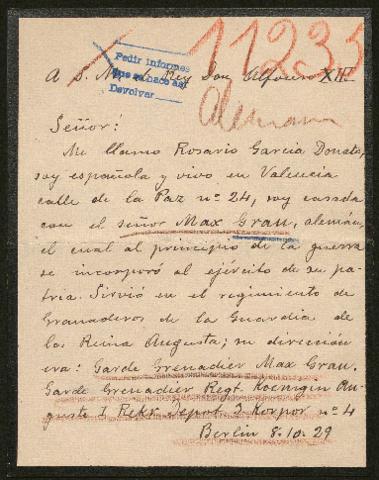 11233
Pedir informes
que se hace así
Devolver
A S. M. el Rey Don Alfonso XIII
Aleman
Señor:
Me llamo Rosario Garcia Donato,
soy española y vivo en Valencia
calle de la Paz nº 24, soy casada
con el señor Max Grau, alemán,
el cual al principio de la guerra
se incorporó al ejército de su pa
tria. Sirvió en el regimiento de
Granaderos de la Guardia de
la Reina Augusta; su dirección
era: Garde Grenadier Max Grau.
Garde Grenadier Regt. Koenigin Au-
guste I Rekr. Depot. 2 Korpor nº 4
Berlin 8.10.29